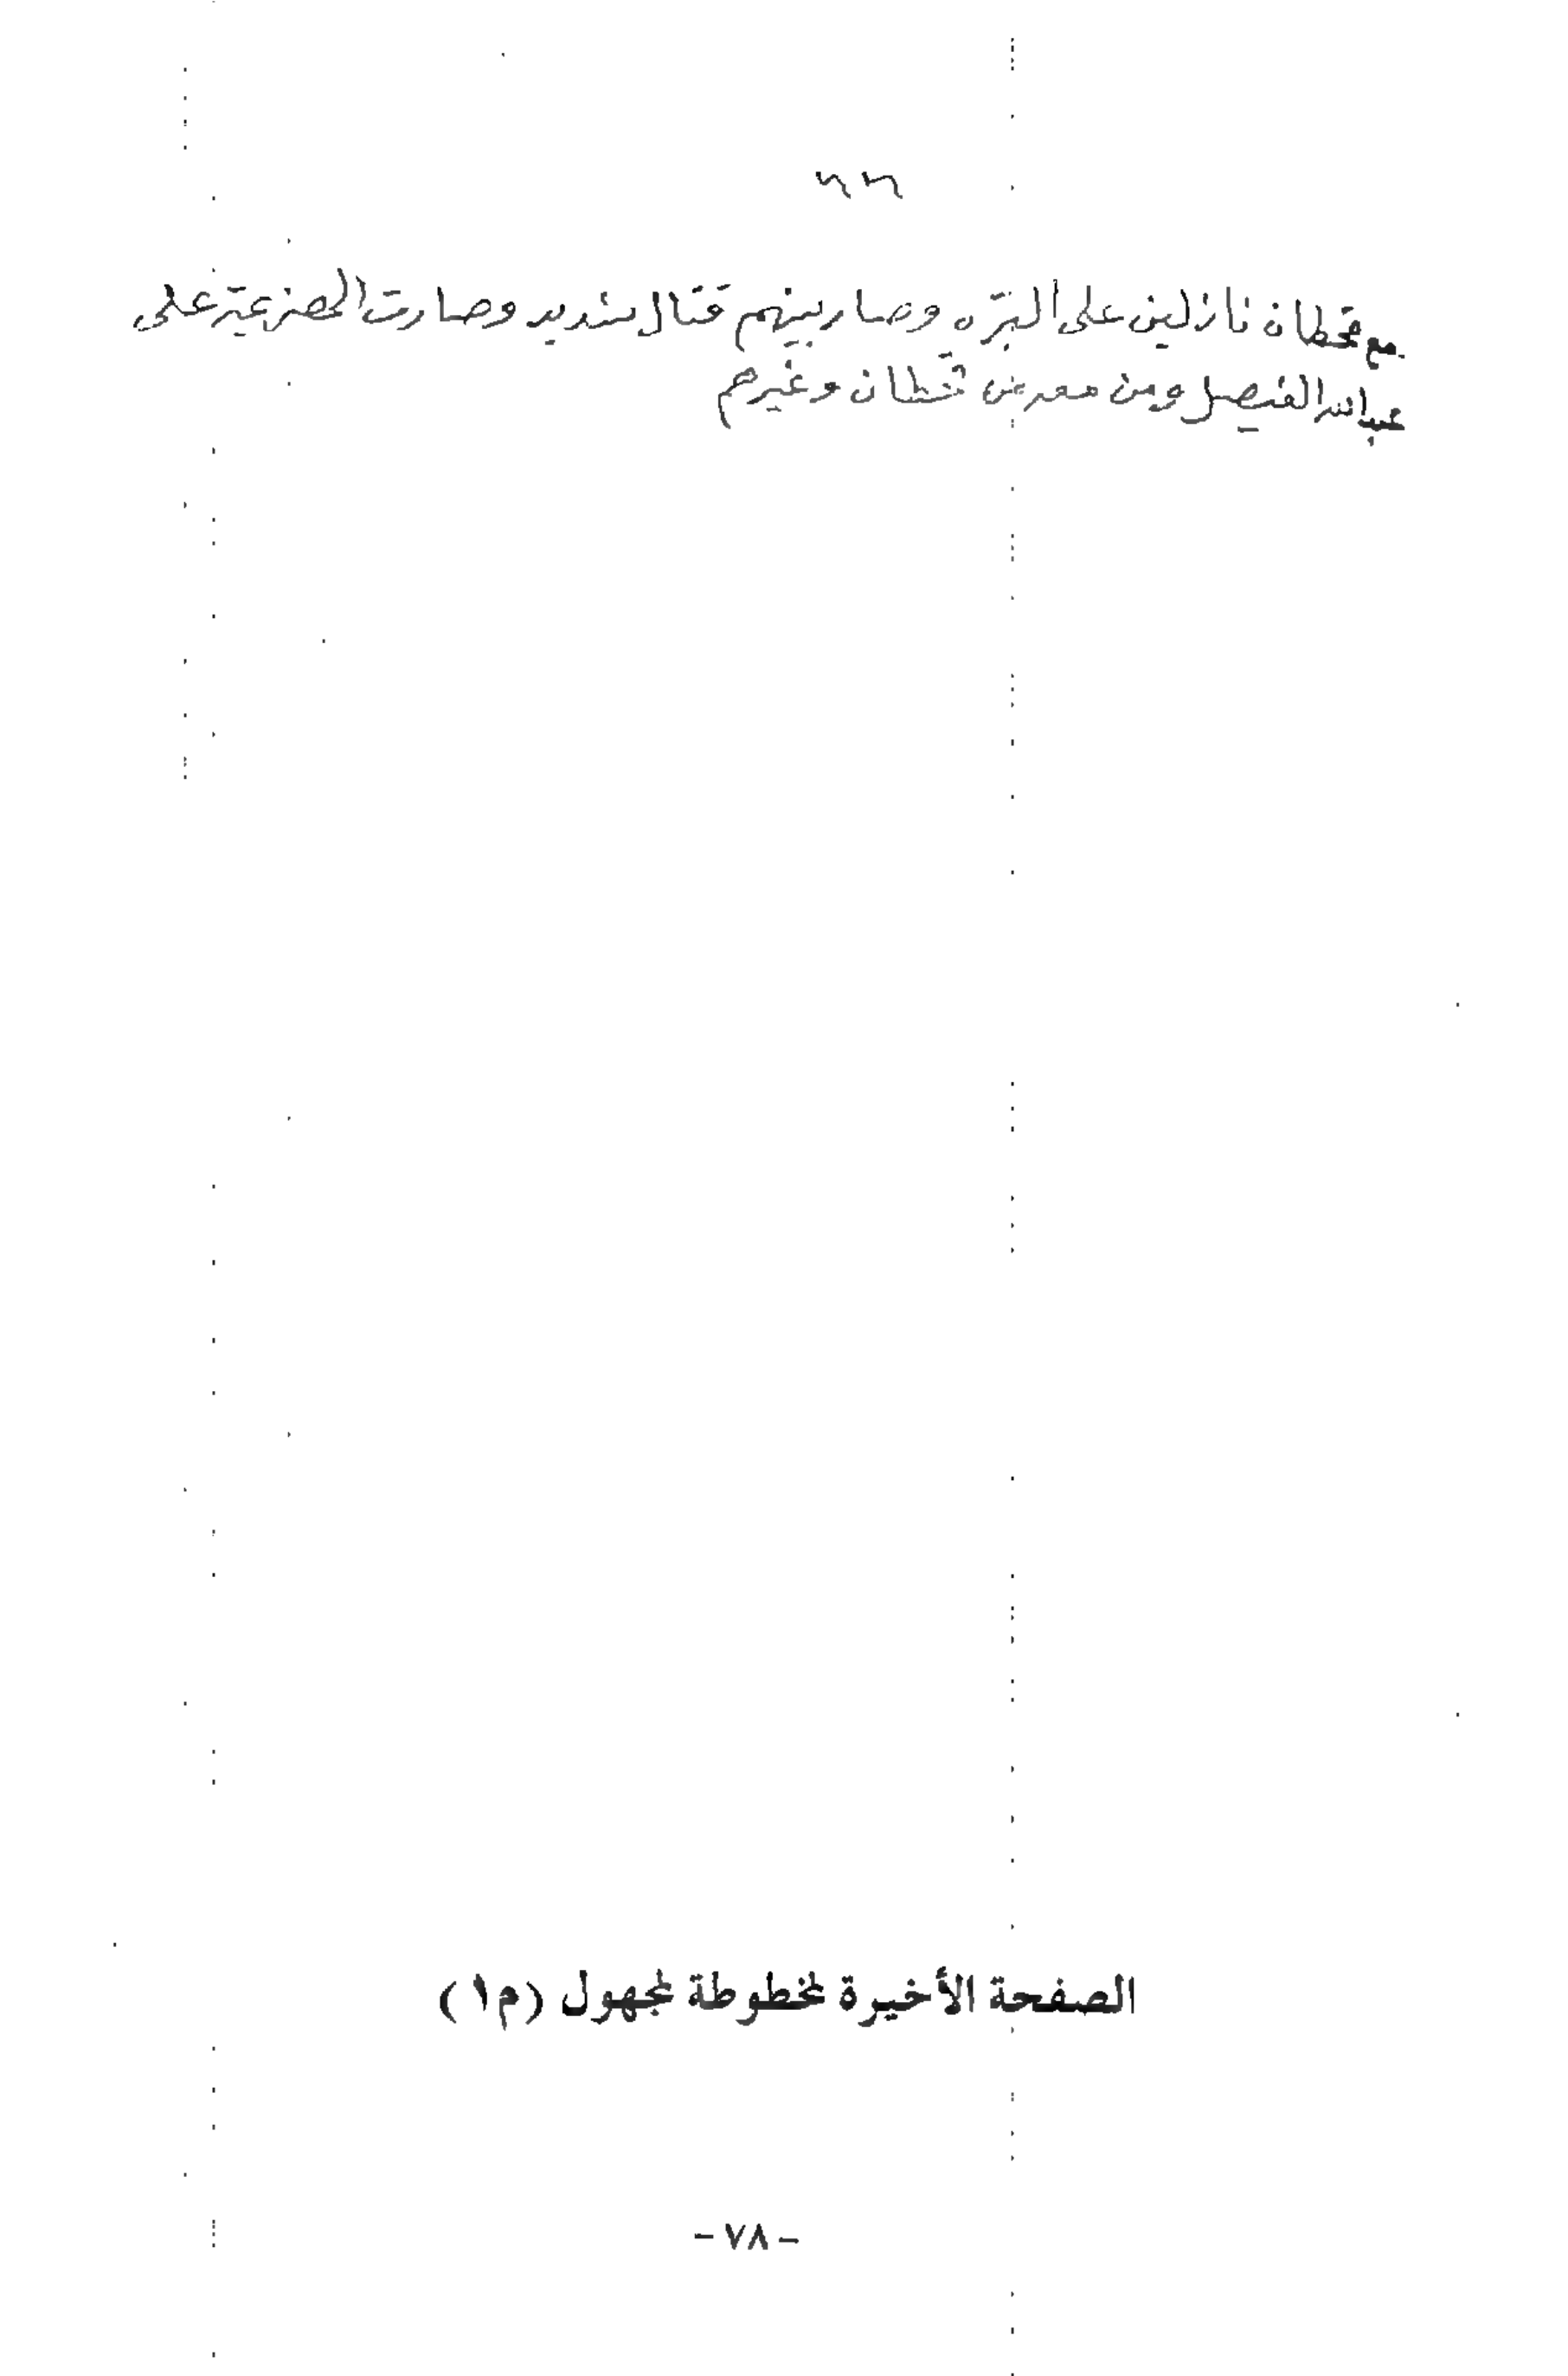 ٦٦
مع قحطان نازلين على البره وصار بينهم قتال شديد وصارت الهزيمة على
عبدالله الفيصل ومن معه من قحطان وغيرهم
الصفحة الأخيرة لمخطوطة لمجهول (م١)
-٧٨-